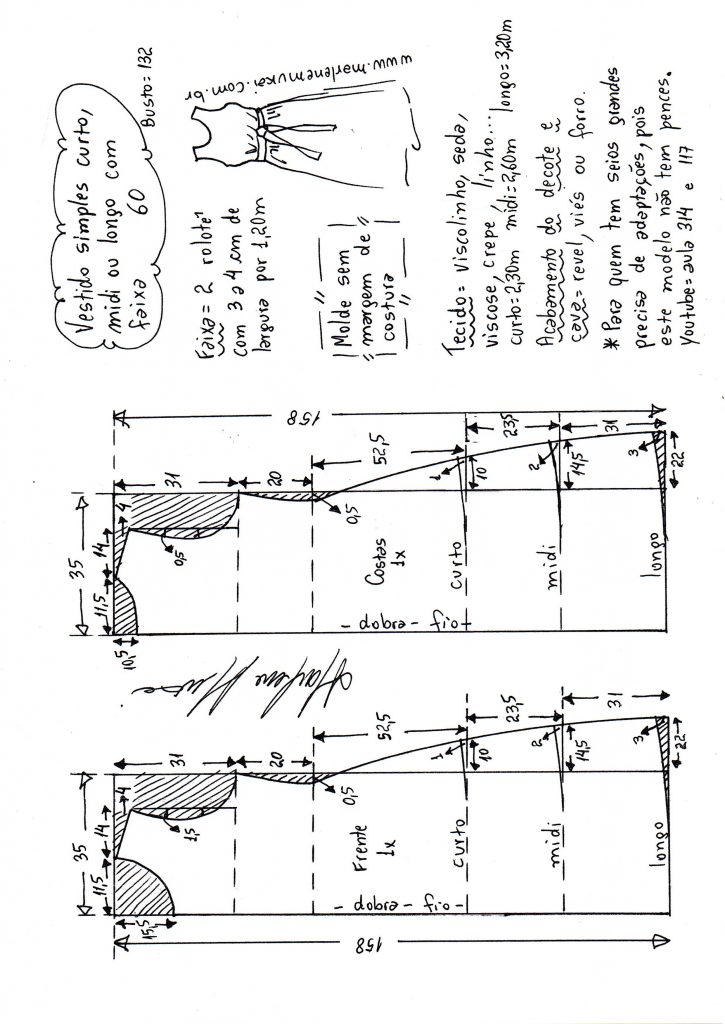 Vestido simples curto,
midi ou longo com
faixa 60
Busto = 132
www.marlenemukai.com.br
Faixa = 2 rolotê
com 3 a 4 cm de
largura por 1,20m
Molde sem
margem de
costura
Tecido = viscolinho, seda,
viscose, crepe, linho...
curto=2,30m midi=2,60m longo=3,20m
Acabamento do decote e
cava = revel, viés ou forro.
* Para quem tem seios grandes
precisa de adaptações, pois
este modelo não tem pences.
Youtube = aula 314 e 117
158
35
31
20
52,5
23,5
31
11,5
14
4
10,5
0,5
0,5
Costas
1x
1
10
2
14,5
3
22
curto
midi
longo
- dobra - fio -
Marlene Mukai
35
31
20
52,5
23,5
31
11,5
14
4
15,5
1,5
0,5
Frente
1x
1
10
2
14,5
3
22
curto
midi
longo
- dobra - fio -
158